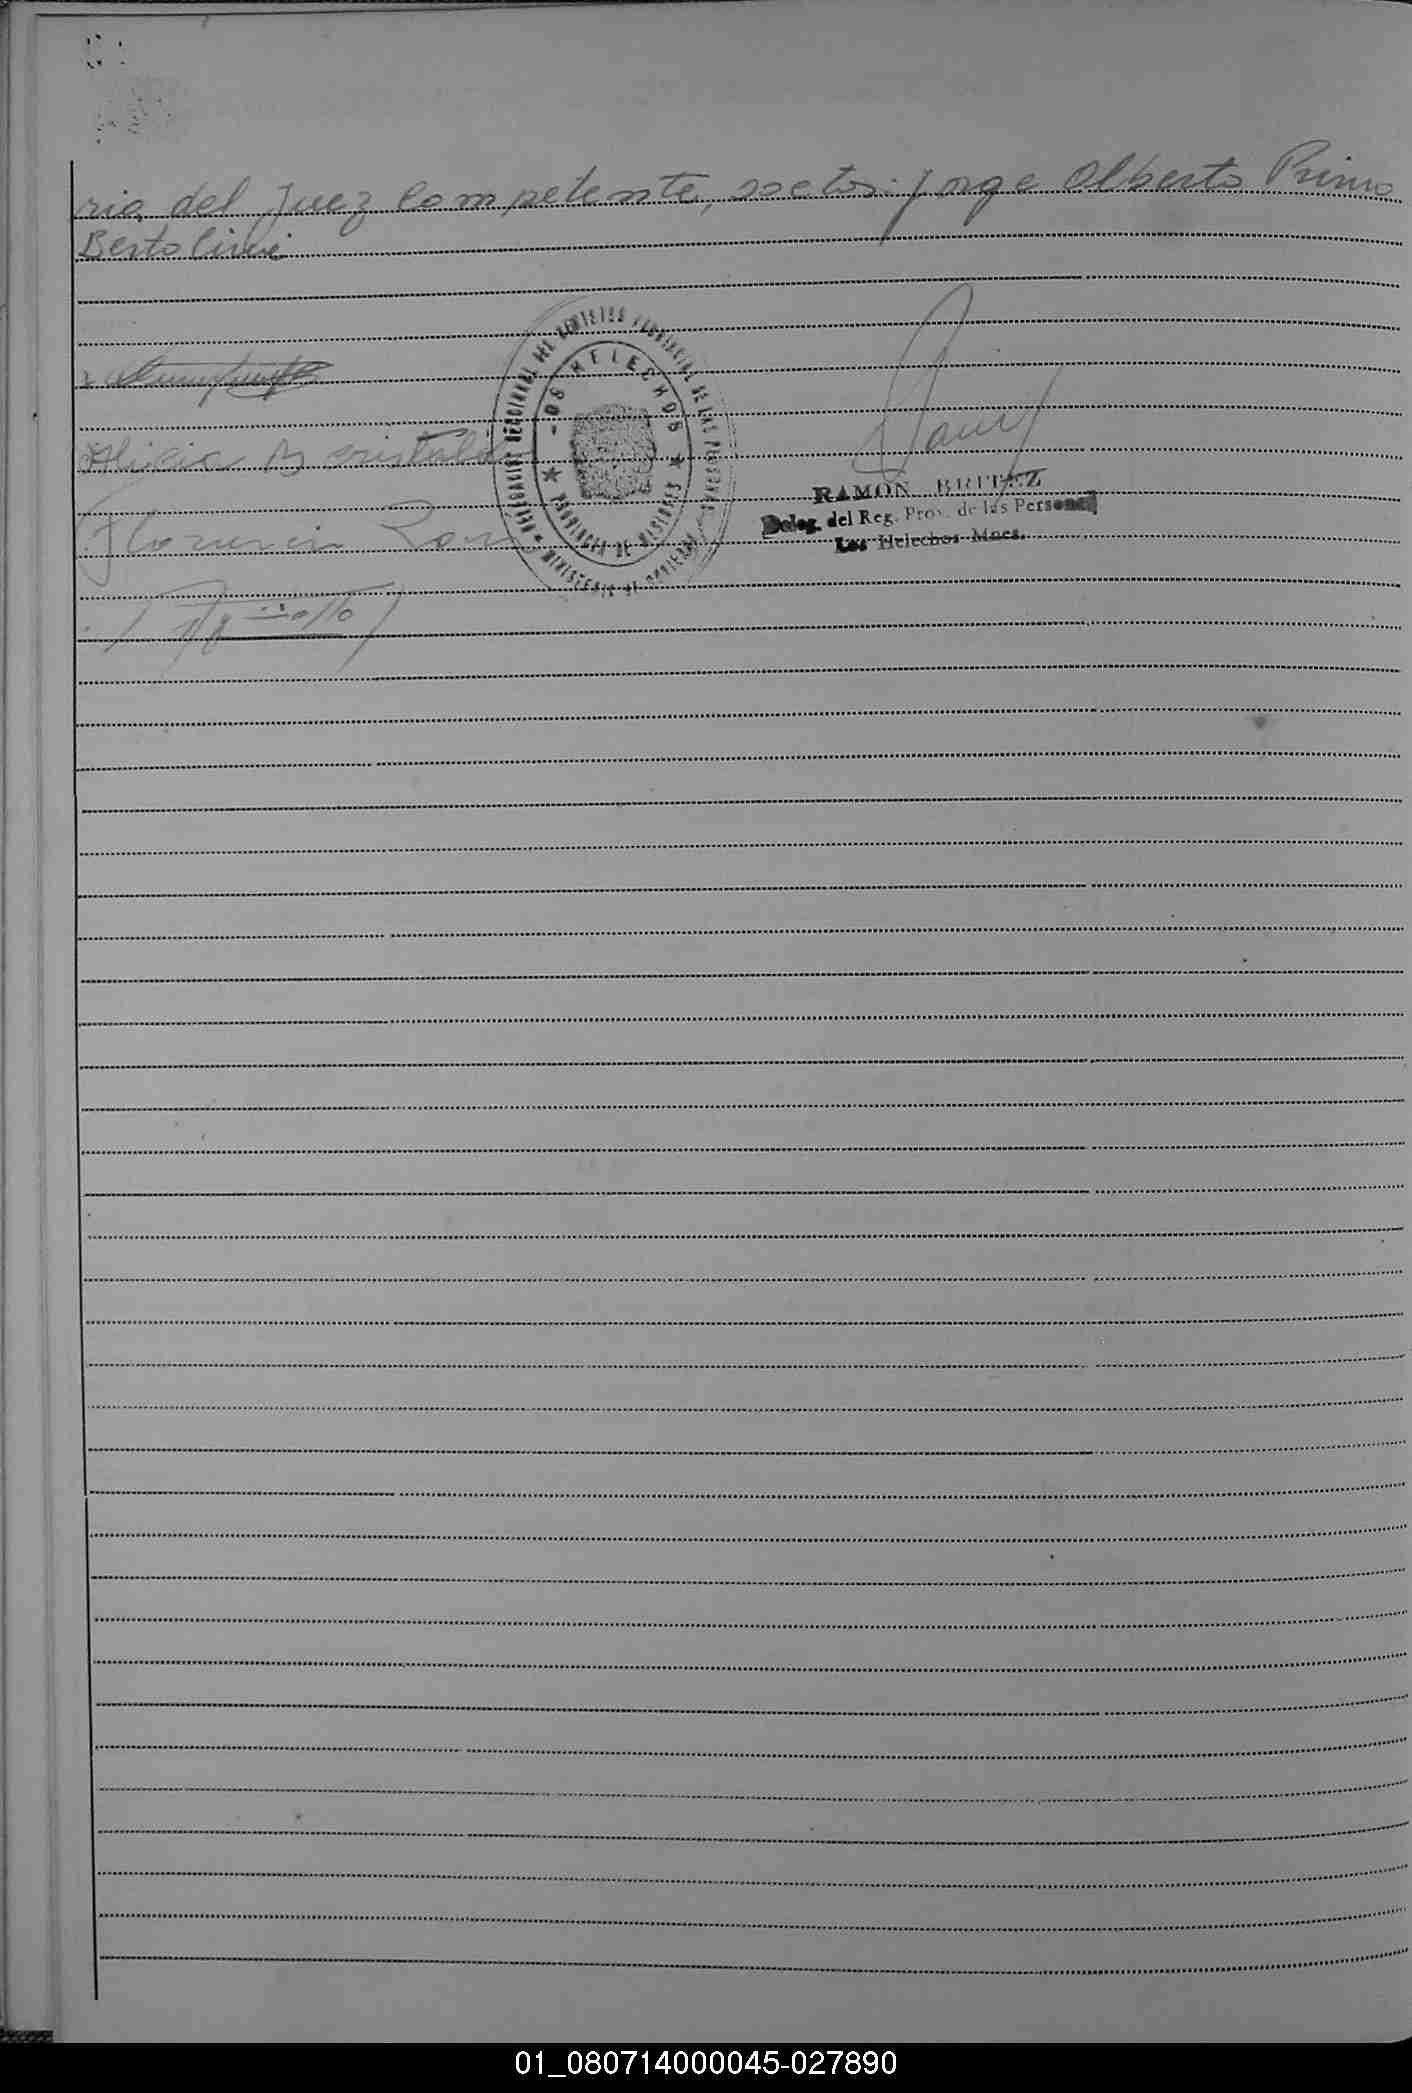 ria del Juez Competente, soctos: Jorge Alberto Primo
Bertolini
Alicia B cristaldo
DELEGACION REGIONAL DEL REGISTRO PROVINCIAL DE LAS PERSONAS
LOS HELECHOS
PROVINCIA DE MISIONES
MINISTERIO DE GOBIERNO
RAMON BRITEZ
Deleg. del Reg. Prov. de las Personas
Los Helechos Mnes.
01_080714000045-027890